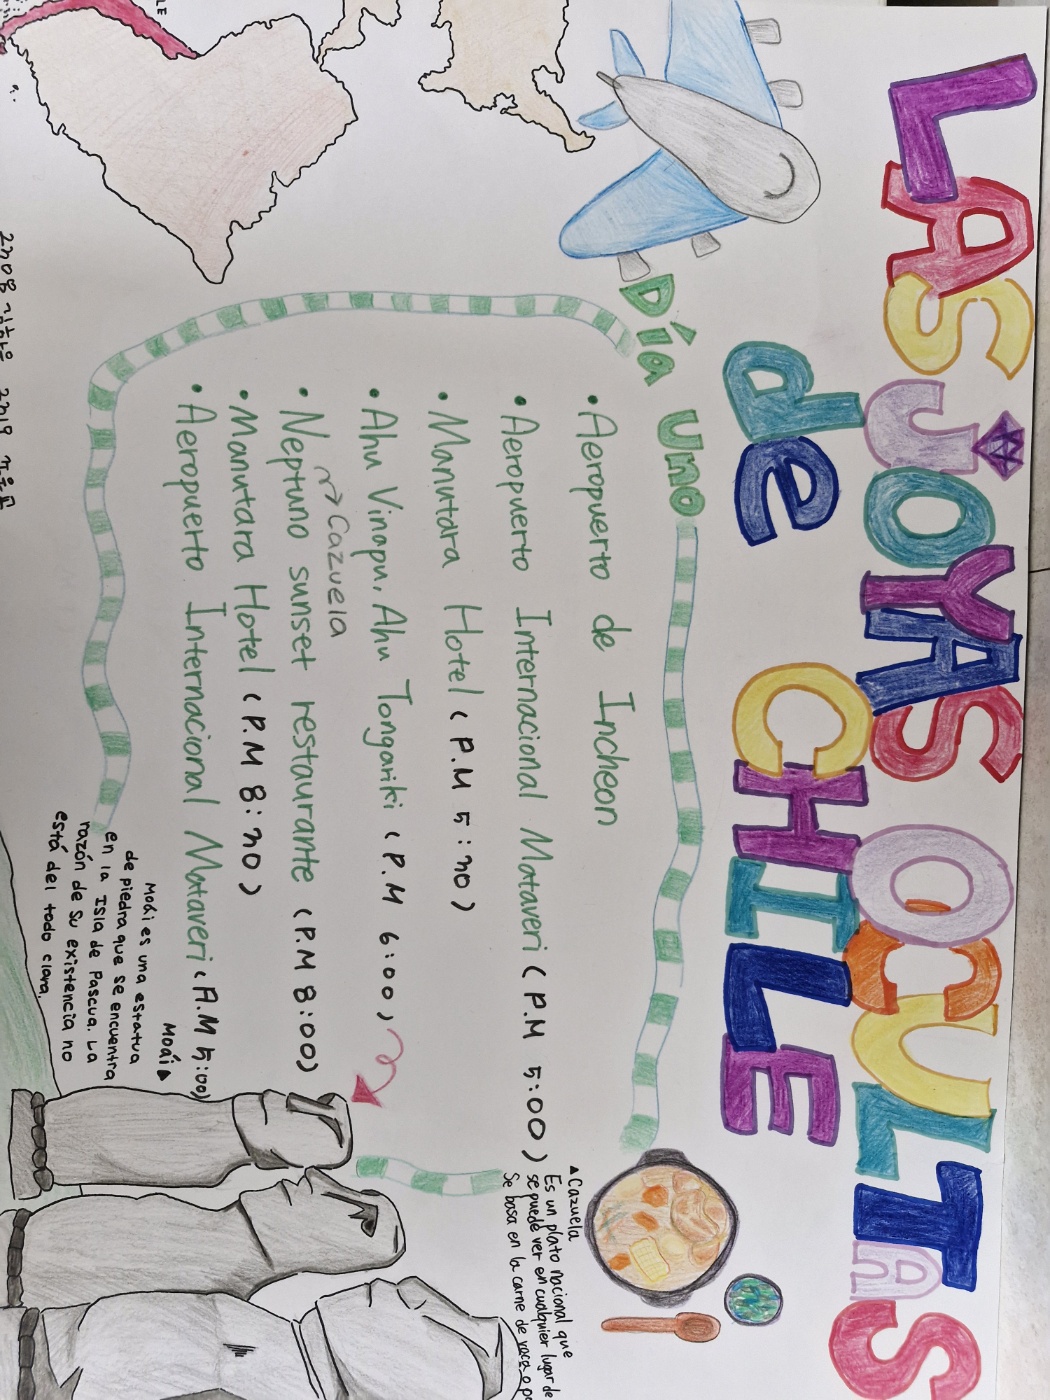 LAS JOYAS OCULTAS
de CHILE
Día Uno
• Aeropuerto de Incheon
• Aeropuerto Internacional Mataveri (P.M 5:00)
• Manutara Hotel (P.M 5:30)
• Ahu Vinapu, Ahu Tongariki (P.M 6:00)
→ Cazuela
• Neptuno sunset restaurante (P.M 8:00)
• Manutara Hotel (P.M 8:30)
• Aeropuerto Internacional Mataveri (A.M 5:00)
▲Cazuela
Es un plato nacional que
se puede ver en cualquier lugar de
Se basa en la carne de vaca o
Moái▲
Moái es una estatua
de piedra que se encuentra
en la Isla de Pascua. La
razón de su existencia no
está del todo clara.
LE